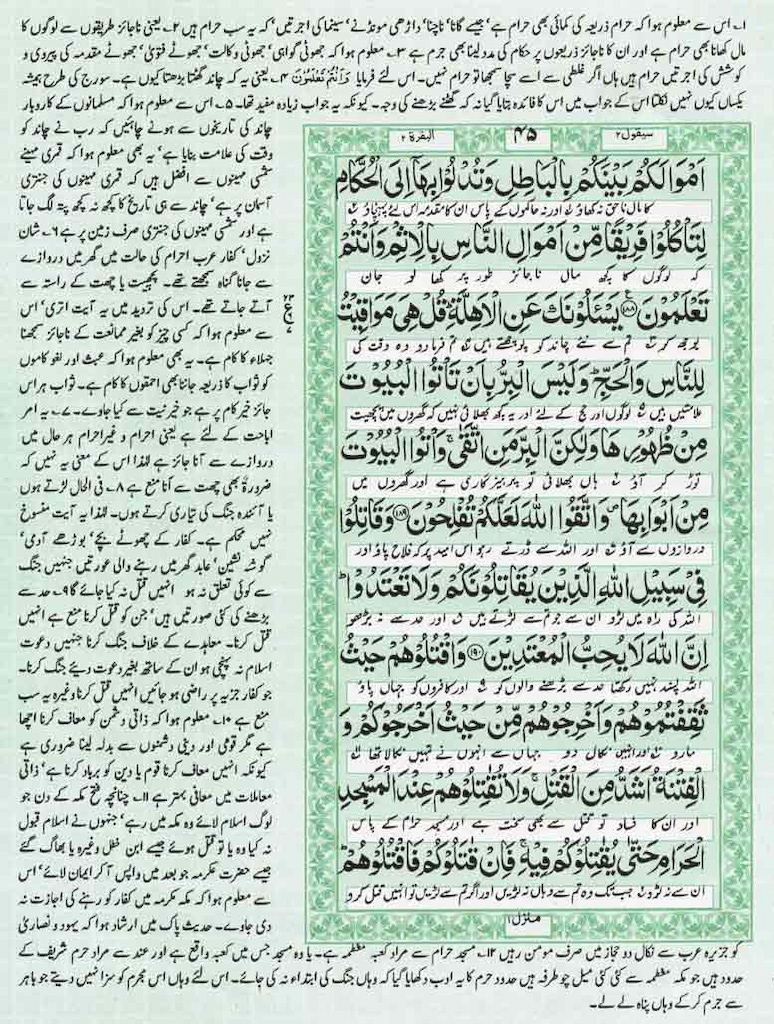 ۱۔ اس سے معلوم ہوا کہ حرام ذریعہ کی کمائی بھی حرام ہے' جیسے گانا' ناچنا' داڑھی مونڈنے' سینما کی اجرتیں' کہ یہ سب حرام ہیں ۲۔ یعنی ناجائز طریقوں سے لوگوں کا
مال کھانا بھی حرام ہے اور ان کا ناجائز ذریعوں پر حکام کی مدد لینا بھی جرم ہے ۳۔ معلوم ہوا کہ جھوٹی گواہی' جھوٹی وکالت' جھوٹے فتویٰ' جھوٹے مقدمہ کی پیروی و
کوشش کی اجرتیں حرام ہیں ہاں اگر غلطی سے اسے سچا سمجھا تو حرام نہیں۔ اس لئے فرمایا وَاَنْتُمْ تَعْلَمُوْنَ ۴۔ یعنی یہ کہ چاند گھٹتا بڑھتا کیوں ہے۔ سورج کی طرح ہمیشہ
یکساں کیوں نہیں نکلتا اس کے جواب میں اس کا فائدہ بتایا گیا نہ کہ گھٹنے بڑھنے کی وجہ۔ کیونکہ یہ جواب زیادہ مفید تھا۔ ۵۔ اس سے معلوم ہوا کہ مسلمانوں کے کاروبار
چاند کی تاریخوں سے ہونے چاہئیں کہ رب نے چاند کو
وقت کی علامت بنایا ہے' یہ بھی معلوم ہوا کہ قمری مہینے
شمسی مہینوں سے افضل ہیں کہ قمری مہینوں کی جنتری
آسمان پر ہے' چاند سے ہی تاریخ کا کچھ نہ کچھ پتہ لگ جاتا
ہے اور شمسی مہینوں کی جنتری صرف زمین پر ہے ۶۔ شان
نزول' کفار عرب احرام کی حالت میں گھر میں دروازے
سے جانا گناہ سمجھتے تھے۔ پچھیت یا چھت کے راستہ سے
آتے جاتے تھے۔ اس کی تردید میں یہ آیت اتری' اس
سے معلوم ہوا کہ کسی چیز کو بغیر ممانعت کے ناجائز سمجھنا
جہلاء کا کام ہے۔ یہ بھی معلوم ہوا کہ عبث اور لغو کاموں
کو ثواب کا ذریعہ جاننا بھی احمقوں کا کام ہے۔ ثواب ہر اس
جائز خیر کام پر ہے جو خیر نیت سے کیا جاوے۔ ۷۔ یہ امر
اباحت کے لئے ہے یعنی احرام و غیر احرام ہر حال میں
دروازے سے آنا جائز ہے لہٰذا اس کے معنی یہ نہیں کہ
ضرورۃً بھی چھت سے آنا منع ہے ۸۔ فی الحال لڑتے ہوں
یا آئندہ جنگ کی تیاری کرتے ہوں۔ لہٰذا یہ آیت منسوخ
نہیں محکم ہے۔ کفار کے چھوٹے بچے' بوڑھے آدمی'
گوشہ نشین' عابد گھر میں رہنے والی عورتیں جنہیں جنگ
سے کوئی تعلق نہ ہو انہیں قتل نہ کیا جائے گا ۹۔ حد سے
بڑھنے کی کئی صورتیں ہیں' جن کو قتل کرنا منع ہے انہیں
قتل کرنا۔ معاہدے کے خلاف جنگ کرنا جنہیں دعوت
اسلام نہ پہنچی ہو ان کے ساتھ بغیر دعوت دیئے جنگ کرنا۔
جو کفار جزیہ پر راضی ہو جائیں انہیں قتل کرنا وغیرہ یہ سب
منع ہے ۱۰۔ معلوم ہوا کہ ذاتی دشمن کو معاف کرنا اچھا
ہے مگر قومی اور دینی دشمنوں سے بدلہ لینا ضروری ہے
کیونکہ انہیں معاف کرنا قوم یا دین کو برباد کرنا ہے' ذاتی
معاملات میں معافی بہتر ہے ۱۱۔ چنانچہ فتح مکہ کے دن جو
لوگ اسلام لائے وہ مکہ میں رہے' جنہوں نے اسلام قبول
نہ کیا وہ یا تو قتل ہوئے جیسے ابن خطل وغیرہ یا بھاگ گئے
جیسے حضرت عکرمہ جو بعد میں واپس آکر ایمان لائے' اس
سے معلوم ہوا کہ مکہ مکرمہ میں کفار کو رہنے کی اجازت نہ
دی جاوے۔ حدیث پاک میں ارشاد ہوا کہ یہود و نصاریٰ
سیقول ۲
۴۵
البقرۃ ۲
اَمْوَالَكُمْ بَيْنَكُمْ بِالْبَاطِلِ وَتُدْلُوْا بِهَآ اِلَى الْحُكَّامِ
کا مال ناحق نہ کھاؤ اور نہ حاکموں کے پاس ان کا مقدمہ اس لئے پہنچاؤ
لِتَاْكُلُوْا فَرِيْقًا مِّنْ اَمْوَالِ النَّاسِ بِالْاِثْمِ وَاَنْتُمْ
کہ لوگوں کا کچھ مال ناجائز طور پر کھا لو جان
تَعْلَمُوْنَ ۱۸۸ يَسْـَٔلُوْنَكَ عَنِ الْاَهِلَّةِ قُلْ هِيَ مَوَاقِيْتُ
بوجھ کر تم سے نئے چاند کو پوچھتے ہیں تم فرما دو وہ وقت کی
لِلنَّاسِ وَالْحَجِّ وَلَيْسَ الْبِرُّ بِاَنْ تَاْتُوا الْبُيُوْتَ
علامتیں ہیں لوگوں اور حج کے لئے اور یہ کچھ بھلائی نہیں کہ گھروں میں پچھیت
مِنْ ظُهُوْرِهَا وَلٰكِنَّ الْبِرَّ مَنِ اتَّقٰى وَاْتُوا الْبُيُوْتَ
توڑ کر آؤ ہاں بھلائی تو پرہیزگاری ہے اور گھروں میں
مِنْ اَبْوَابِهَا وَاتَّقُوا اللّٰهَ لَعَلَّكُمْ تُفْلِحُوْنَ ۱۸۹ وَقَاتِلُوْا
دروازوں سے آؤ اور اللہ سے ڈرتے رہو اس امید پر کہ فلاح پاؤ اور
فِيْ سَبِيْلِ اللّٰهِ الَّذِيْنَ يُقَاتِلُوْنَكُمْ وَلَا تَعْتَدُوْا
اللہ کی راہ میں لڑو ان سے جو تم سے لڑتے ہیں اور حد سے نہ بڑھو
اِنَّ اللّٰهَ لَا يُحِبُّ الْمُعْتَدِيْنَ ۱۹۰ وَاقْتُلُوْهُمْ حَيْثُ
اللہ پسند نہیں رکھتا حد سے بڑھنے والوں کو اور کافروں کو جہاں پاؤ
ثَقِفْتُمُوْهُمْ وَاَخْرِجُوْهُمْ مِّنْ حَيْثُ اَخْرَجُوْكُمْ وَ
مارو اور انہیں نکال دو جہاں سے انہوں نے تمہیں نکالا تھا
الْفِتْنَةُ اَشَدُّ مِنَ الْقَتْلِ وَلَا تُقٰتِلُوْهُمْ عِنْدَ الْمَسْجِدِ
اور ان کا فساد تو قتل سے بھی سخت ہے اور مسجد حرام کے پاس
الْحَرَامِ حَتّٰى يُقٰتِلُوْكُمْ فِيْهِ فَاِنْ قٰتَلُوْكُمْ فَاقْتُلُوْهُمْ
ان سے نہ لڑو جب تک وہ تم سے وہاں نہ لڑیں اور اگر تم سے لڑیں تو انہیں قتل کرو
منزل ۱
کو جزیرہ عرب سے نکال دو حجاز میں صرف مومن رہیں ۱۲۔ مسجد حرام سے مراد کعبہ معظمہ ہے۔ یا وہ مسجد جس میں کعبہ واقع ہے اور عند سے مراد حرم شریف کے
حدود ہیں جو مکہ معظمہ سے کئی کئی میل چو طرفہ ہیں حدود حرم کا یہ ادب دکھایا گیا کہ وہاں جنگ کی ابتداء نہ کی جائے۔ اس لئے وہاں اس مجرم کو سزا نہیں دیتے جو باہر
سے جرم کر کے وہاں پناہ لے لے۔